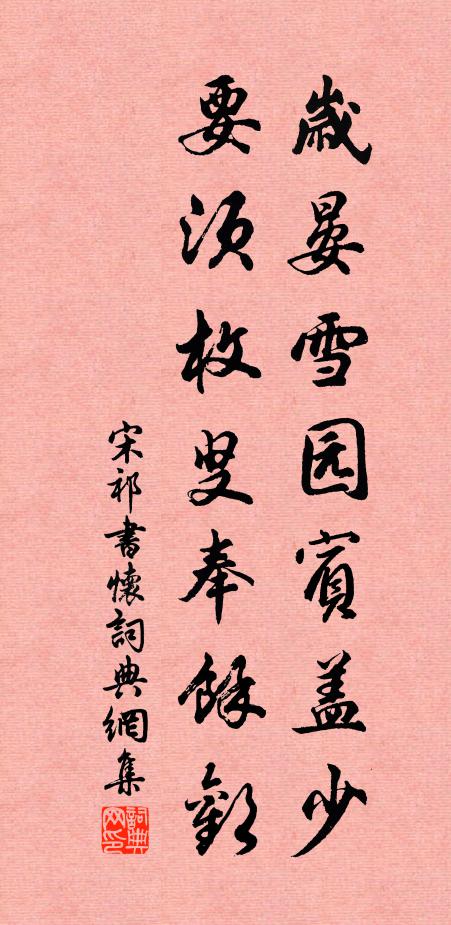 歲晏雪园賓盖少
要須枚叟奉餘歡
宋祁書懷詞典網集
詞典网印